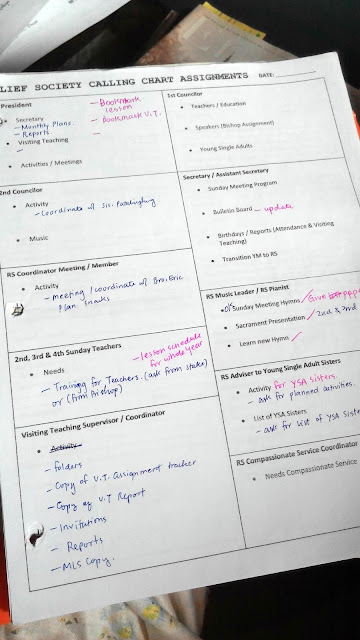 LIEF SOCIETY CALLING CHART ASSIGNMENTS
DATE:
President
Secretary
- Monthly Plans
- Reports
Visiting Teaching
Activities / Meetings
- Bookmark
lesson
- Bookmark V.T.
1st Councilor
Teachers / Education
Speakers (Bishop Assignment)
Young Single Adults
2nd Councilor
Activity
- Coordinate w/ Sis.
Music
Secretary / Assistant Secretary
Sunday Meeting Program
Bulletin Board - update
Birthdays / Reports (Attendance & Visiting
Teaching)
Transition YM to RS
RS Coordinator Meeting / Member
Activity
- meeting / coordinate w/ Bro. Eric
Plan snacks
RS Music Leader / RS Pianist
Sunday Meeting Hymns / Give
Sacrament Presentation / 2nd & 3rd
Learn new Hymn /
2nd, 3rd & 4th Sunday Teachers
Needs
- lesson schedule
for whole year
- Training for Teachers. (ask from stake)
or (from Bishop)
RS Adviser to Young Single Adult Sisters
Activity for YSA Sisters
- ask for planned activities.
List of YSA Sisters
- ask for list of YSA Siste
Visiting Teaching Supervisor / Coordinator
Activity
- folders
- Copy of V.T. Assignment tracker
- Copy of V.T Report
- Invitations
- Reports
- MLS Copy.
RS Compassionate Service Coordinator
Needs Compassionate Service